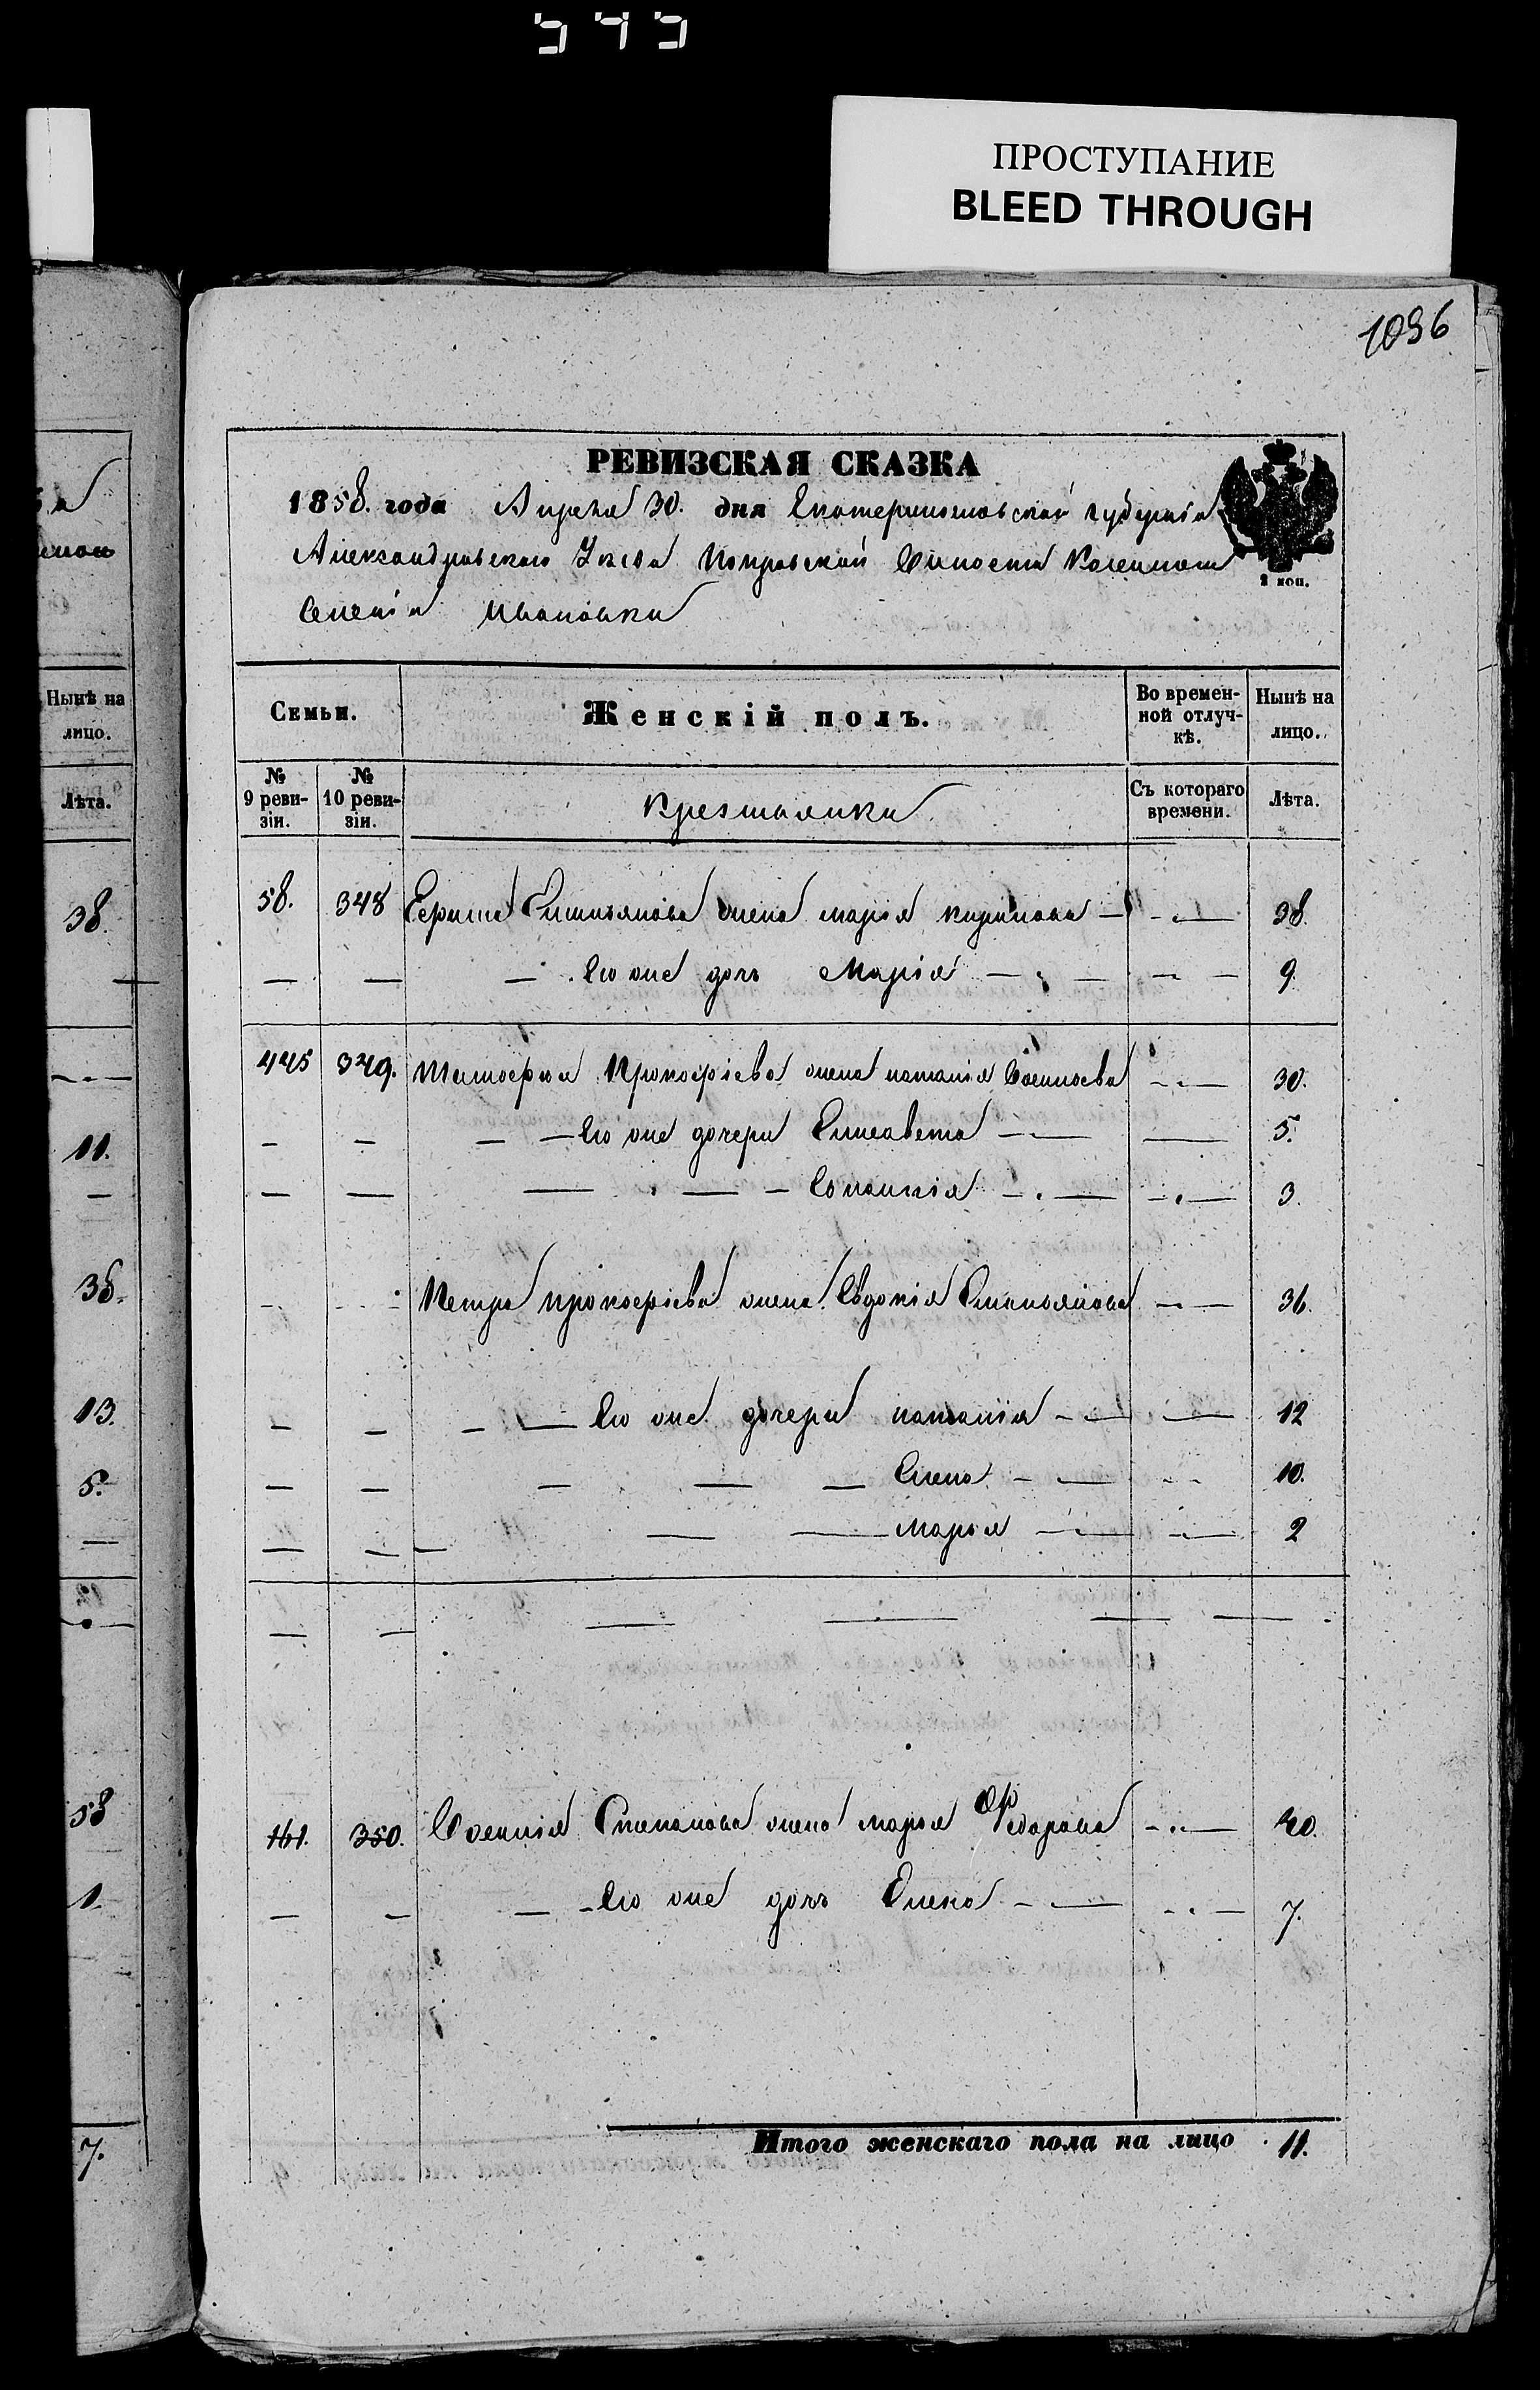 545
ПРОСТУПАНИЕ
BLEED THROUGH
1096
РЕВИЗСКАЯ СКАЗКА
1858. года Апреля 30. дня Екатеринославской губерніи
Александровского Уезда Покровской Волости Казенного
Селенія Ивановки
2 коп.
Семьи.
Женскій полъ.
Во времен-
ной отлуч-
кѣ.
Нынѣ на
лицо.
№
9 реви-
зіи.
№
10 реви-
зіи.
Крестьянки
Съ котораго
времени.
Лѣта.
58. 348 Емельянова жена Марія Кирилова 38.
Его же дочь Марія 9
445 349. Тимофея Прокофіева жена Наталія 30.
Его же дочери Елисавета 5.
3.
Петра Прокофіева жена Евдокія Емельянова 36.
Его же дочери Наталія 12
Елена 10.
Марья 2
161. 350. Степанова жена Марья Федорова 40.
Его же дочь Елена 7.
Итого женскаго пола на лицо 11.
Нынѣ на
лицо.
Лѣта.
38.
11.
36.
13.
5.
58
1.
7.